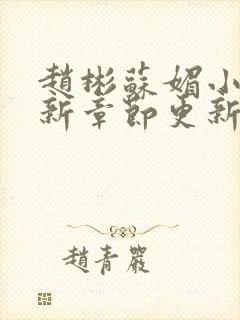 趙彬蘇媚小
新章節更新
趙青嚴